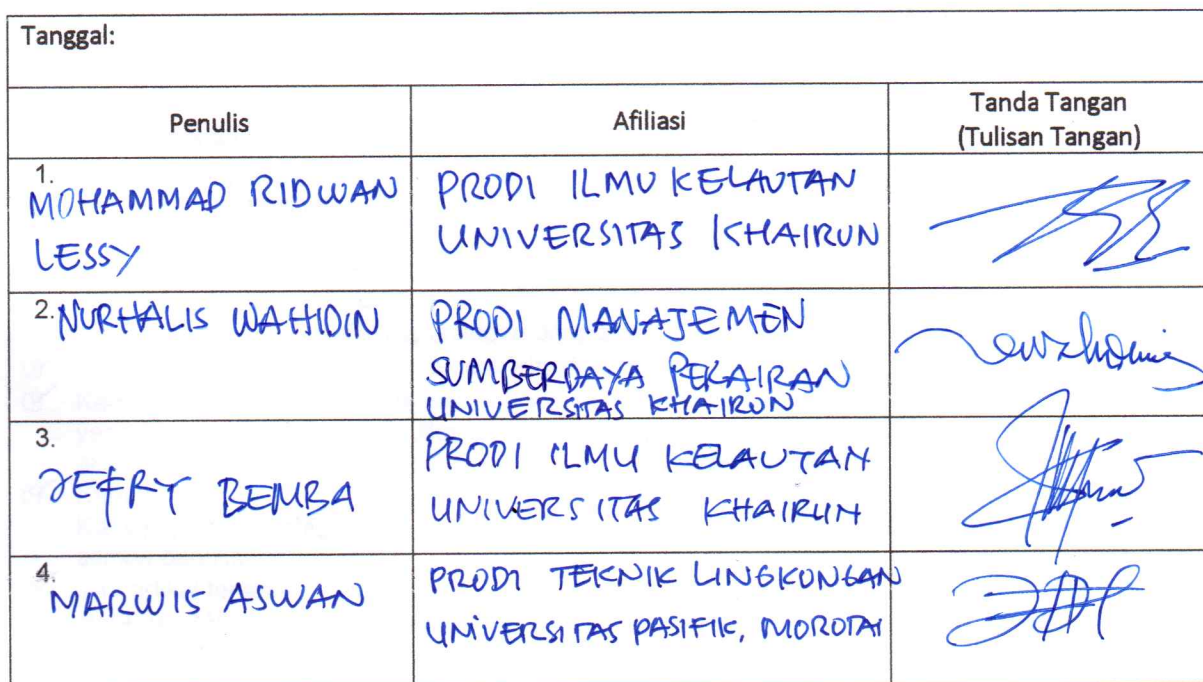 Tanggal:
Penulis
Afiliasi
Tanda Tangan
(Tulisan Tangan)
1.
MOHAMMAD RIDWAN
LESSY
PRODI ILMU KELAUTAN
UNIVERSITAS KHAIRUN
2. NURHALIS WAHIDIN
PRODI MANAJEMEN
SUMBERDAYA PERAIRAN
UNIVERSITAS KHAIRUN
3.
JEFRY BEMBA
PRODI ILMU KELAUTAN
UNIVERSITAS KHAIRUN
4.
MARWIS ASWAN
PRODI TEKNIK LINGKUNGAN
UNIVERSITAS PASIFIK, MOROTAI